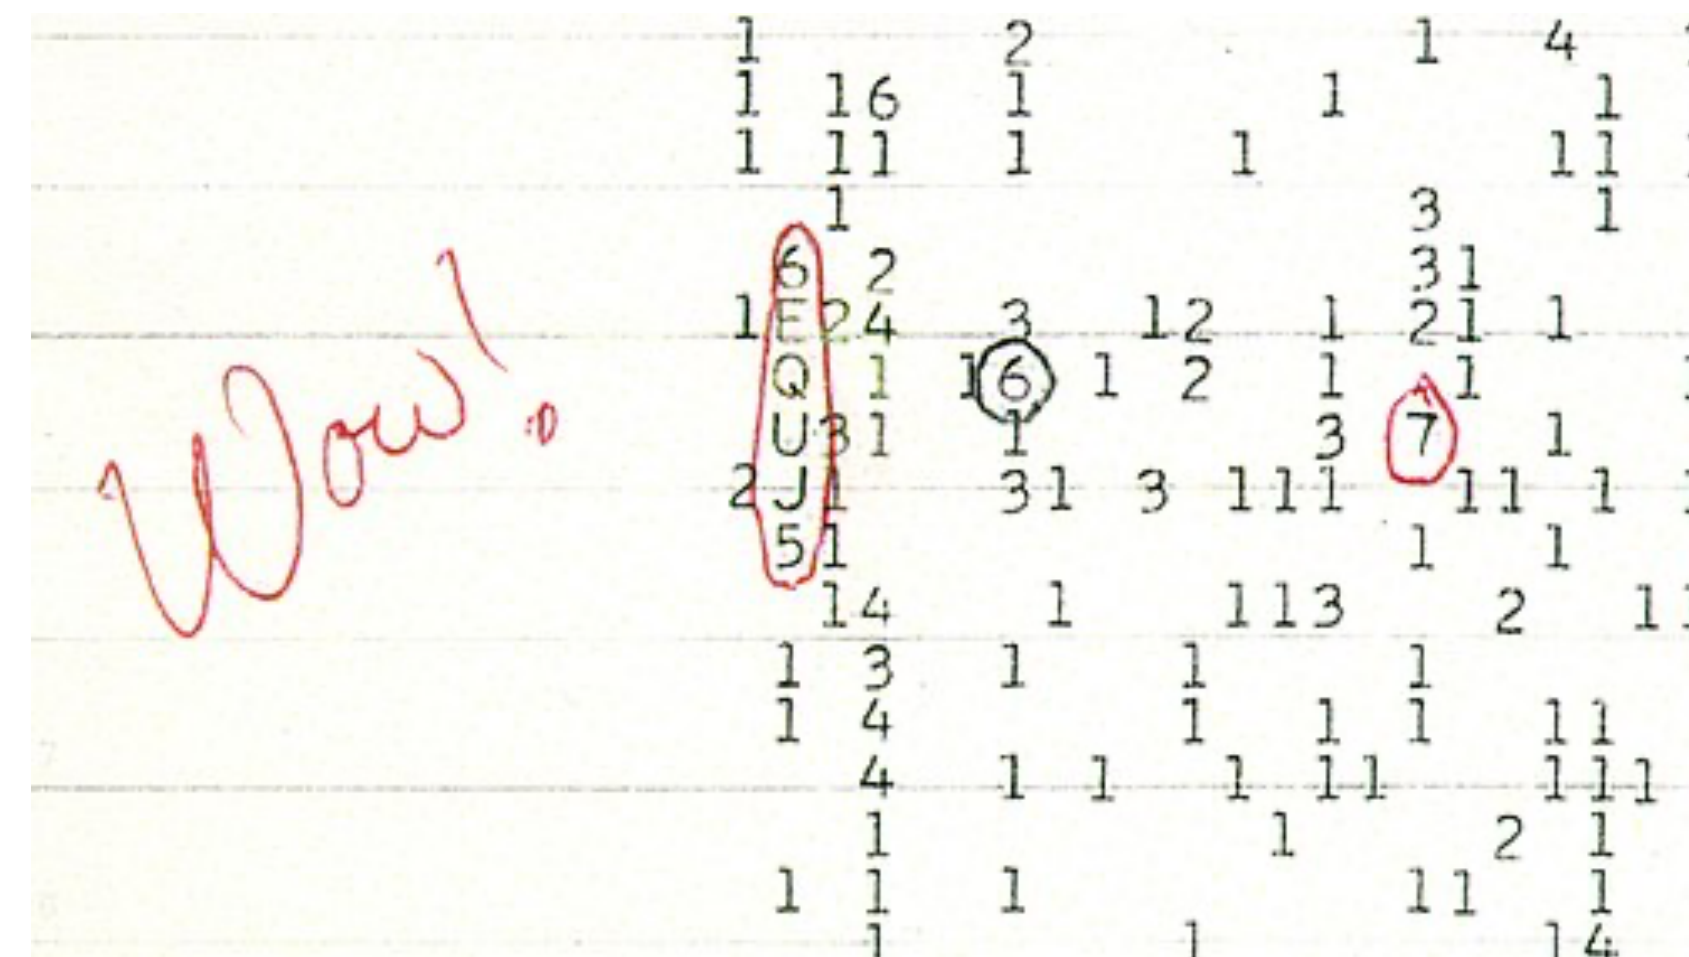 1 2 1 4
1 16 1 1 1
1 11 1 1 11
1 3 1
6 2 31
1E24 3 12 1 21 1
Q 1 16 1 2 1 1
U31 1 3 7 1
2J1 31 3 111 11 1
51 1 1
14 1 113 2 1
1 3 1 1 1
1 4 1 1 1 11
4 1 1 1 11 111
1 1 2 1
1 1 1 11 1
1 1 14
Wow!